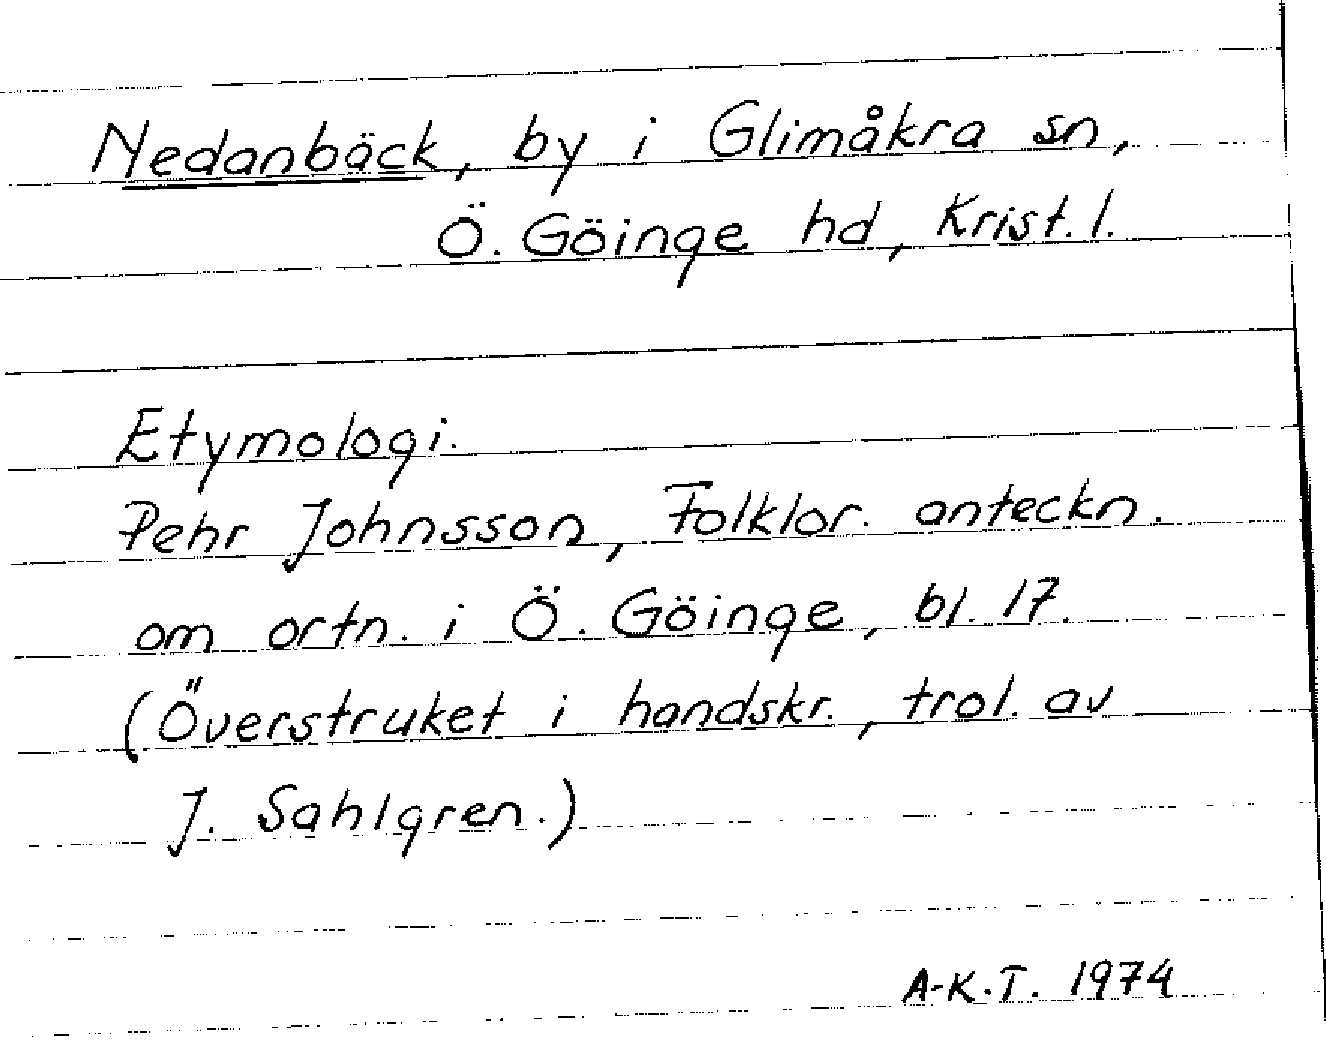 Nedanbäck, by i Glimåkra sn,
Ö. Göinge hd, Krist. l.
Etymologi.
Pehr Johnsson, Folklor. anteckn.
om ortn. i Ö. Göinge, bl. 17.
(Överstruket i handskr., trol. av
J. Sahlgren.)
A-K.T. 1974